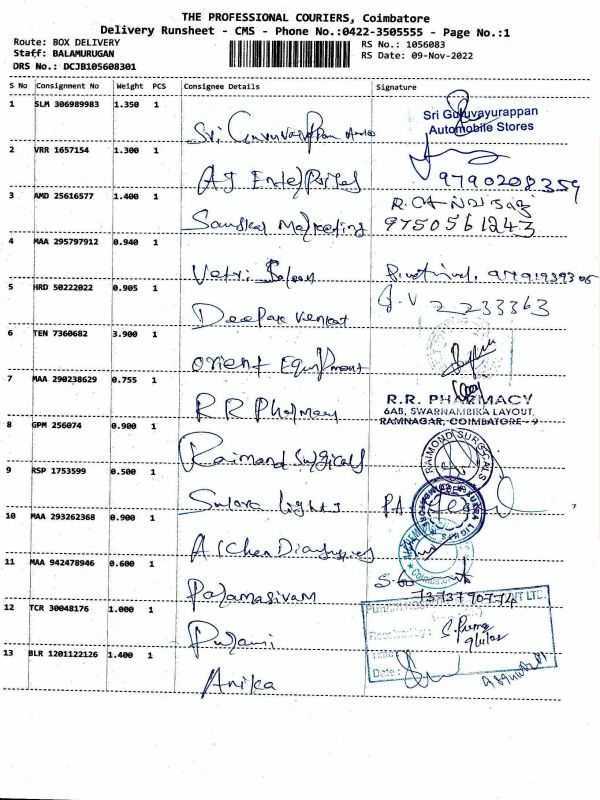 THE PROFESSIONAL COURIERS, Coimbatore
Delivery Runsheet - CMS - Phone No.:0422-3505555 - Page No.:1
Route: BOX DELIVERY
Staff: BALAMURUGAN
DRS No.: DCJB105608301
RS No.: 1056083
RS Date: 09-Nov-2022
S No Consignment No Weight PCS Consignee Details Signature
1 SLM 306989983 1.350 1 Sri Guruvayurappan Auto
Sri Guruvayurappan
Automobile Stores
2 VRR 1657154 1.300 1 AJ Enterprises 9790208359
3 AMD 25616577 1.400 1 Sanskar Marketing
9750561243
4 MAA 295797912 0.940 1 Vetri Saloon
5 HRD 50222022 0.905 1 Deepak Venkat 2233363
6 TEN 7360682 3.900 1 Orient Equipment
7 MAA 290238629 0.755 1 R R Pharmacy
R.R. PHARMACY
6AB, SWARNAMBIKA LAYOUT,
RAMNAGAR, COIMBATORE - 9
8 GPM 256074 0.900 1 Raimond Surgicals
RAIMOND SURGICALS
9 RSP 1753599 0.500 1 Surora Lights
10 MAA 293262368 0.900 1
11 MAA 942478946 0.600 1 Paramasivam
7373790774
12 TCR 30048176 1.000 1
13 BLR 1201122126 1.400 1 Anika
Received by:
Time:
Date: